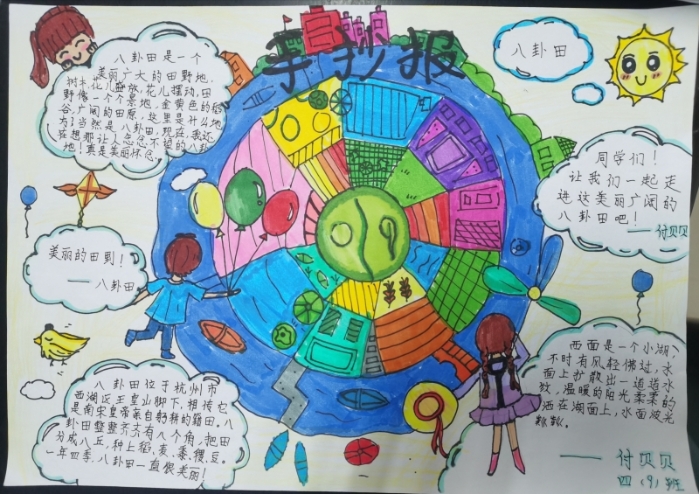 手抄报
八卦田是一个
美丽广大的田野地，
树木花儿盛放，花儿摆动，田
野像一个个景地，金黄色的稻
谷，广阔的田原，这里是什么地
方？当然是八卦田，现在，我还
在想那让人念念不忘的八卦
地！真是美丽怀念。
八卦田
同学们！
让我们一起走
进这美丽广阔的
八卦田吧！
——付贝贝
美丽的田则！
——八卦田
八卦田位于杭州市
西湖区玉皇山脚下，相传它
是南宋皇帝亲自躬耕的籍田。八
卦田整整齐齐有八个角，把田
分成八丘，种上稻、麦、黍、稷、豆。
一年四季，八卦田一直很美丽！
西面是一个小湖，
不时有风轻佛过，水
面上扩散出一道道水
纹，温暖的阳光柔柔的
洒在湖面上，水面波光
粼粼。
——付贝贝
四（9）班